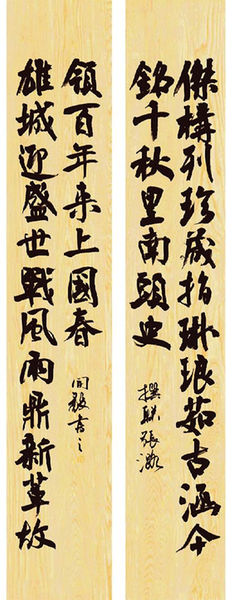 傑構列珍藏指琳琅茹古涵今
銘千秋里南頭史
撰联張
雄城迎盛世戰風雨鼎新革故
領百年来上國春
書之